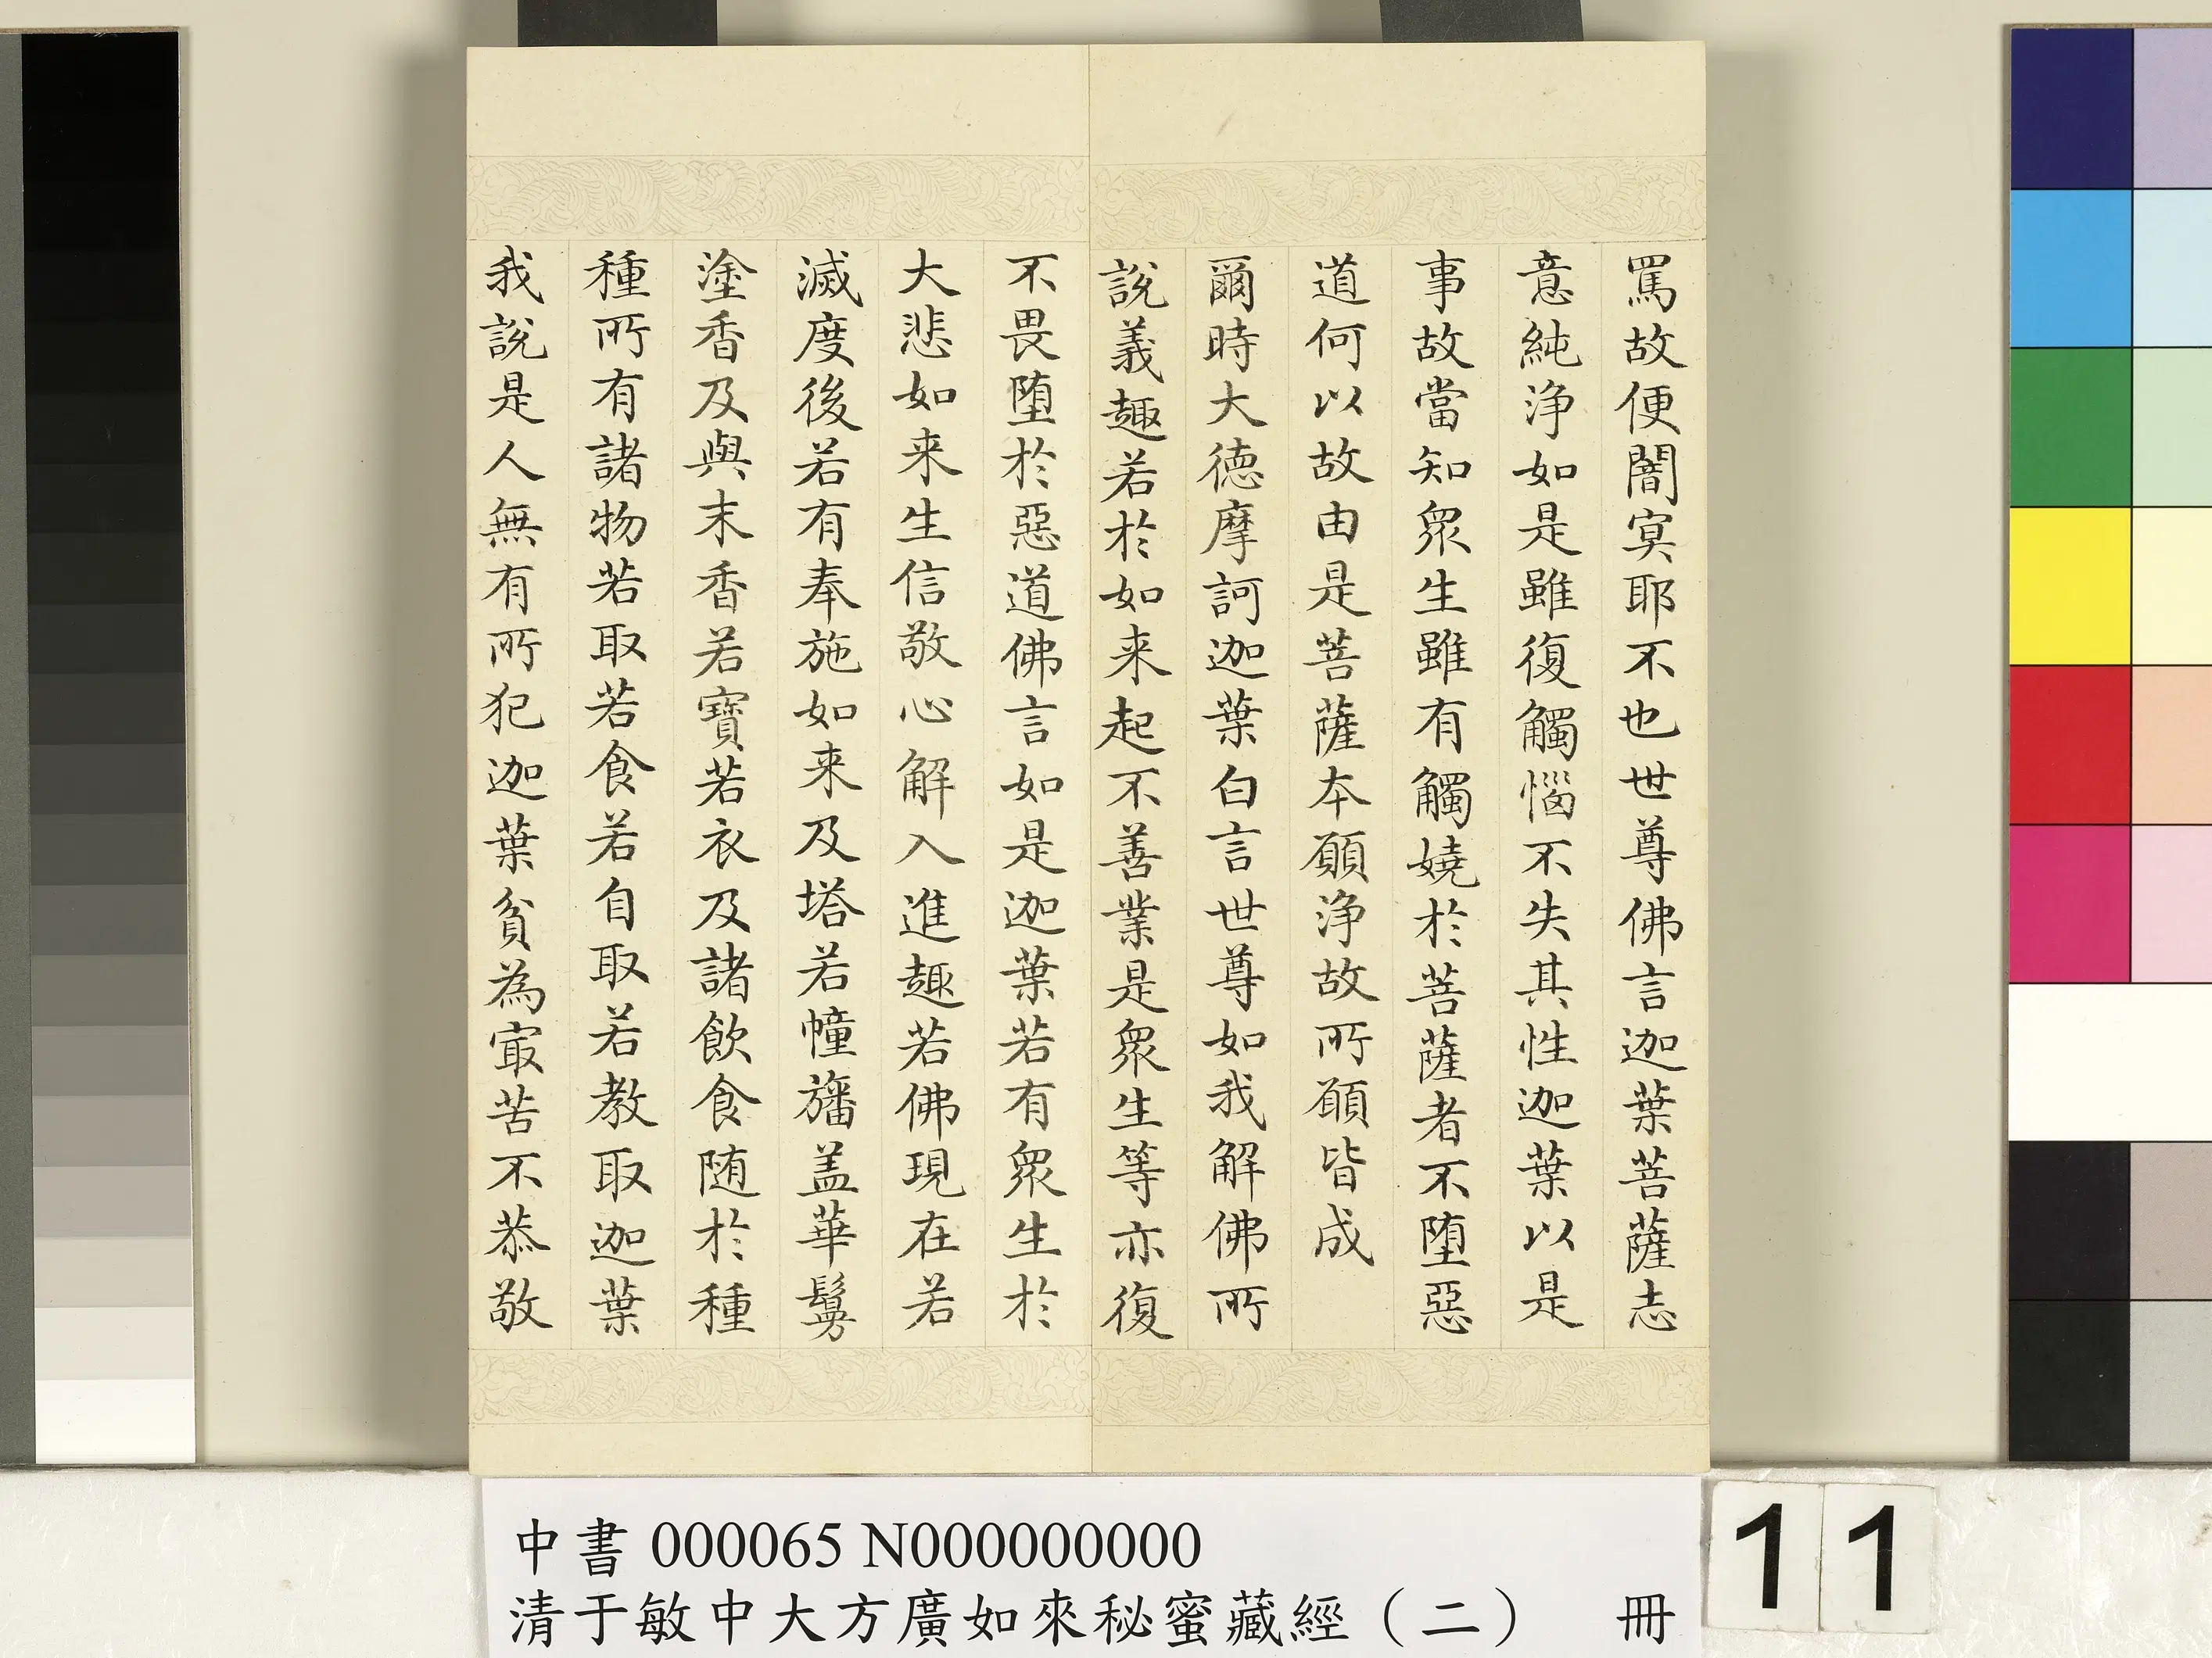 罵故便闇冥耶不也世尊佛言迦葉菩薩志
意純淨如是雖復觸惱不失其性迦葉以是
事故當知眾生雖有觸嬈於菩薩者不墮惡
道何以故由是菩薩本願淨故所願皆成
爾時大德摩訶迦葉白言世尊如我解佛所
說義趣若於如来起不善業是眾生等亦復
不畏墮於惡道佛言如是迦葉若有眾生於
大悲如来生信敬心解入進趣若佛現在若
滅度後若有奉施如来及塔若幢旛盖華鬘
塗香及與末香若寶若衣及諸飲食随於種
種所有諸物若取若食若自取若教取迦葉
我說是人無有所犯迦葉貧為㝡苦不恭敬
中書 000065 N000000000
清于敏中大方廣如來秘蜜藏經（二） 冊
11